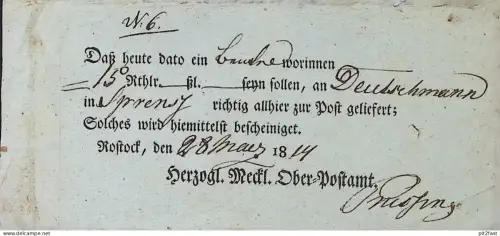 N. 6.
Daß heute dato ein worinnen
150 Rthlr. ßl. seyn sollen, an Deutschmann
in Sprenz richtig allhier zur Post geliefert;
Solches wird hiemittelst bescheiniget.
Rostock, den 28 Maerz 1814
Herzogl. Meckl. Ober-Postamt.